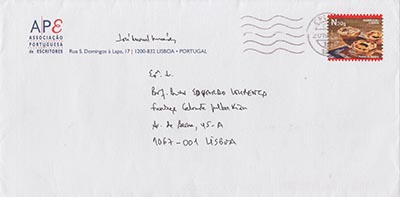 APE
ASSOCIAÇÃO
PORTUGUESA
de ESCRITORES
Rua S. Domingos à Lapa, 17 | 1200-832 LISBOA • PORTUGAL
José Manuel Mendes
Exº. S.
Prof. Doutor EDUARDO LOURENÇO
Fundação Calouste Gulbenkian
Av. de Berna, 45-A
1067-001 LISBOA
N20g